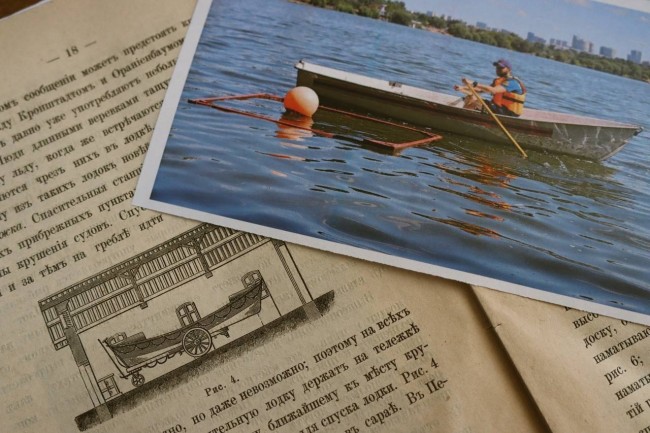 — 18 —
омъ сообщеніи можетъ предстоять
Кронштадтомъ и Ораніенбаумом
давно уже употребляютъ небол
Люди длинными веревками тащ
льду, когда же встрѣчается
ются чрезъ нихъ въ лодкѣ,
изъ такихъ лодокъ новѣ
Спасительныя стан
прибрежныхъ пункта
ны крушенія судовъ. Спу
и за тѣмъ на греблѣ идти
Рис. 4.
но, но даже невозможно; поэтому на всѣхъ
ительную лодку держатъ на тележкѣ
ближайшему къ мѣсту кру-
для спуска лодки. Рис. 4
въ сараѣ. Въ Пе-
высо
доску,
наматываю
рис. 6;
намать
тій